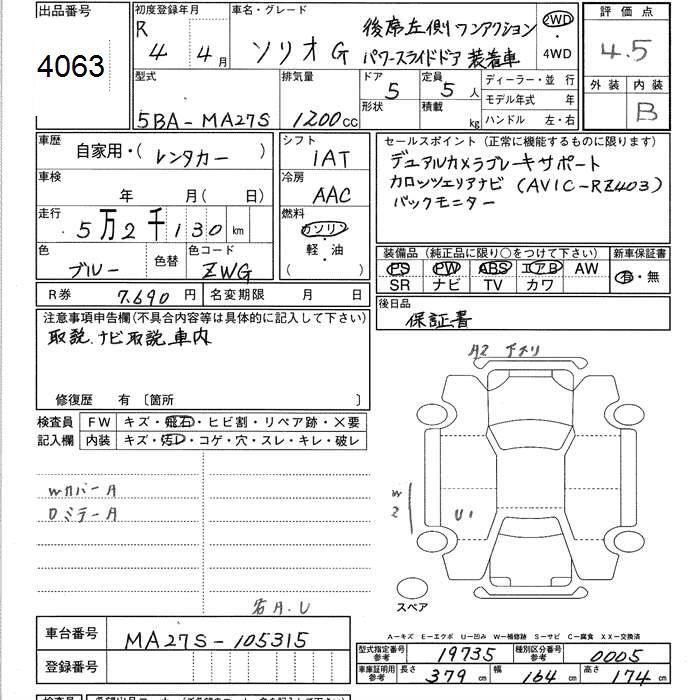 出品番号
4063
初度登録年月
R 4 4月
車名・グレード
ソリオG
後席左側ワンアクション
パワースライドドア装着車
2WD
・
4WD
評価点
4.5
外装 内装
B
型式
5BA-MA27S
排気量
1200cc
ドア
5
形状
定員
5人
積載
kg
ディーラー・並行
モデル年式 年
ハンドル 左・右
車歴
自家用・(レンタカー)
車検
年 月( 日)
走行
5万2千130km
色
ブルー
色替
色コード
ZWG
シフト
IAT
冷房
AAC
燃料
ガソリン
・
軽・油
( )
セールスポイント(正常に機能するものに限ります)
デュアルカメラブレーキサポート
カロッツェリアナビ(AVIC-RZ403)
バックモニター
装備品(純正品に限り○をつけて下さい)
PS PW ABS エアB AW
SR ナビ TV カワ
新車保証書
有・無
R券 7,690円
名変期限 月 日
後日品
保証書
注意事項申告欄(不具合内容等は具体的に記入して下さい)
取説、ナビ取説車内
修復歴 有 〔箇所 〕
検査員
記入欄
FW キズ・飛石・ヒビ割・リペア跡・×要
内装 キズ・汚レ・コゲ・穴・スレ・キレ・破レ
Wカバー A
Dミラー A
A2
W
2
U1
スペア
A.U
A-キズ E-エクボ U-凹み W-補修跡 S-サビ C-腐食 XX-交換済
車台番号 MA27S-105315
登録番号
型式指定番号
参考
19735
種別区分番号
参考
0005
車庫証明用
参考
長さ 379cm
幅 164cm
高さ 174cm